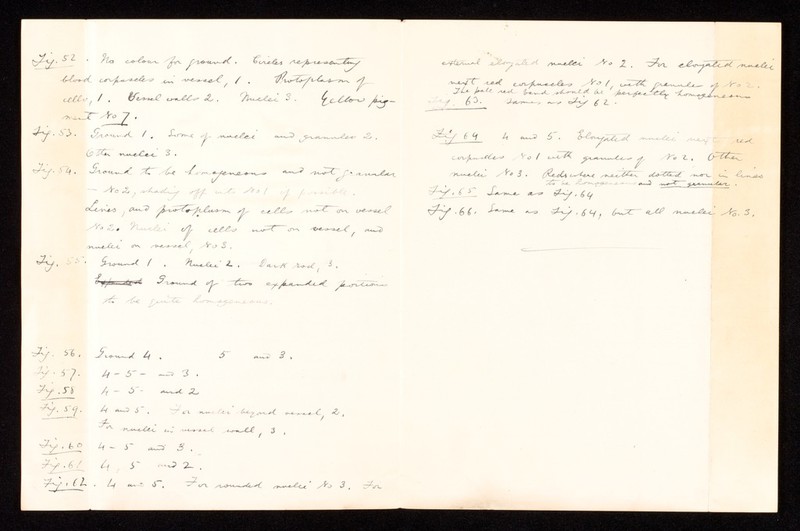 Fig. 52. No colour for ground. Circles representing
blood corpuscles in vessel, 1. Protoplasm of
cells, 1. Vessel walls 2. Nuclei 3. Yellow pig-
ment No 7.
Fig. 53. Ground 1. Some of nuclei and granules 2.
Other nuclei 3.
Fig. 54. Ground to be homogeneous and not granular
- No 2, shading off into No 1 if possible.
Lines, and protoplasm of cells not on vessel
No 2. Nuclei of cells not on vessel, and
nuclei on vessel, No 3.
Fig. 55. Ground 1. Nuclei 2. Dark rod, 3.
Ground of two expanded portions
to be quite homogeneous.
Fig. 56. Ground 4. 5 and 3.
Fig. 57. 4 - 5 - and 3.
Fig. 58 4 - 5 - and 2
Fig. 59. 4 and 5. For nuclei beyond vessel, 2.
For nuclei in vessel wall, 3.
Fig. 60 4 - 5 and 3.
Fig. 61 4, 5 and 2.
Fig. 62. 4 and 5. For rounded nuclei No 3. For
external elongated nuclei No 2. For elongated nuclei
next red corpuscles No 1, with granules of No 2.
The pale red band should be perfectly homogeneous
Fig. 63. Same as Fig 62.
Fig 64 4 and 5. Elongated nuclei next red
corpuscles No 1 with granules of No 2. Other
nuclei No 3. Red neither dotted nor in lines
to be homogeneous and not granular.
Fig. 65 Same as Fig. 64
Fig. 66. Same as Fig. 64, but all nuclei No. 3.